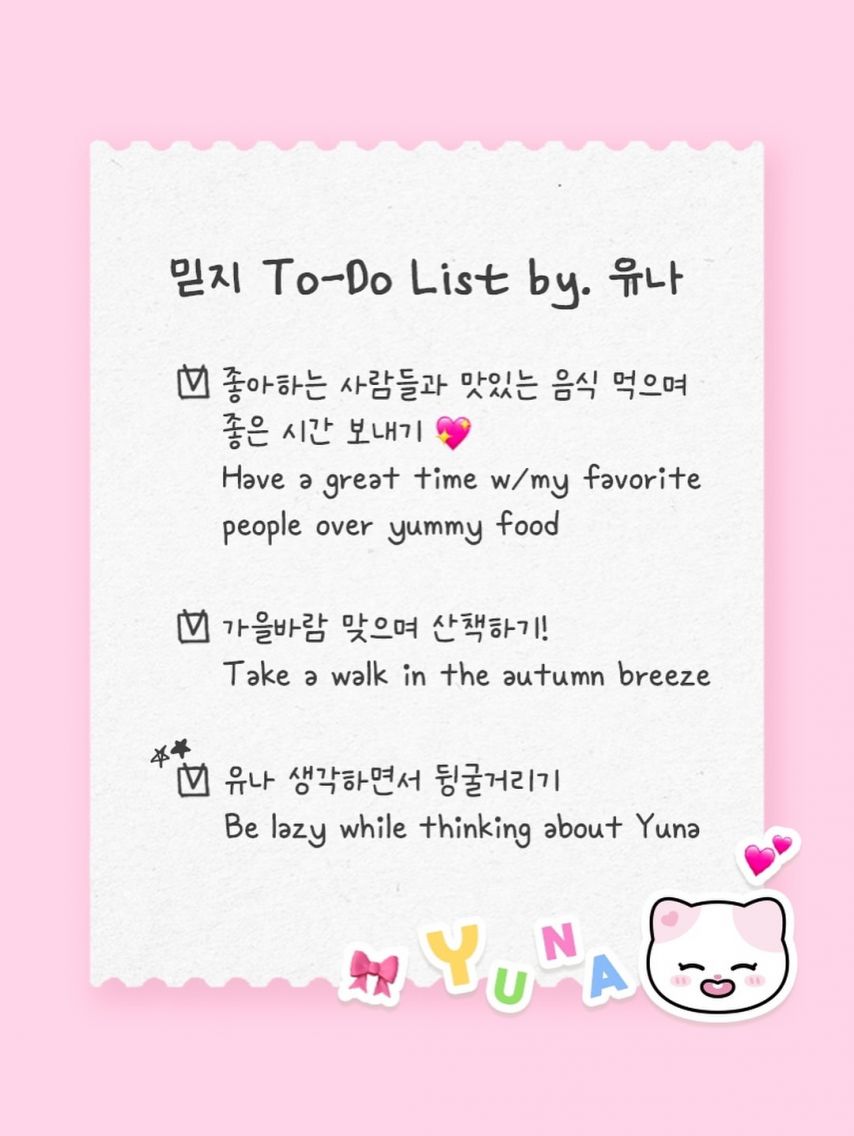 믿지 To-Do List by. 유나
좋아하는 사람들과 맛있는 음식 먹으며
좋은 시간 보내기 💖
Have a great time w/my favorite
people over yummy food
가을바람 맞으며 산책하기!
Take a walk in the autumn breeze
유나 생각하면서 뒹굴거리기
Be lazy while thinking about Yuna
YUNA